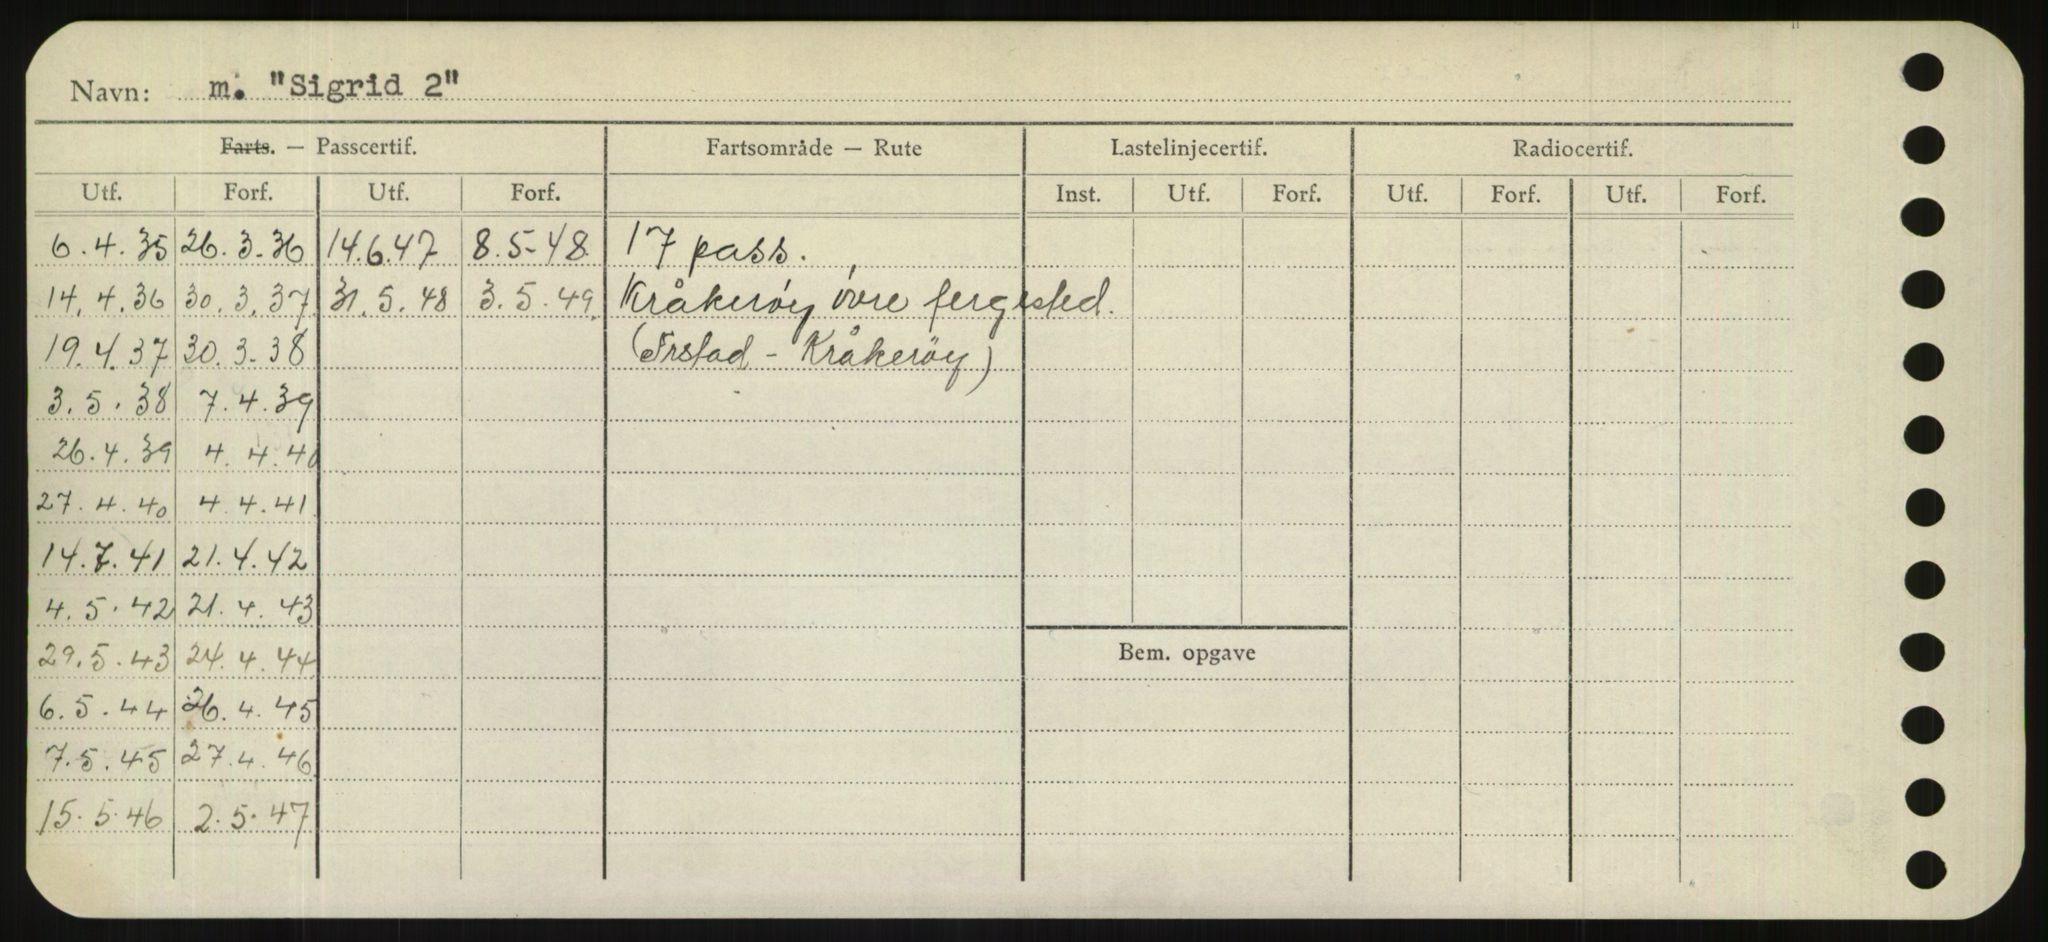 Navn: m. "Sigrid 2"
Farts. — Passcertif. Fartsområde — Rute Lastelinjecertif. Radiocertif.
Utf. Forf. Utf. Forf. Inst. Utf. Forf. Utf. Forf. Utf. Forf.
6.4.35 26.3.36 14.6.47 8.5-48 17 pass.
14.4.36 30.3.37 31.5.48 3.5.49 Kråkerøy øvre fergested.
19.4.37 30.3-38 (Frstad - Kråkerøy)
3.5.38 7.4.39
26.4.39 4.4.40
27.4.40 4.4.41
14.7.41 21.4.42
4.5.42 21.4.43
29.5.43 24.4.44
Bem. opgave
6.5.44 26.4.45
7.5.45 27.4.46
15.5.46 2.5.47